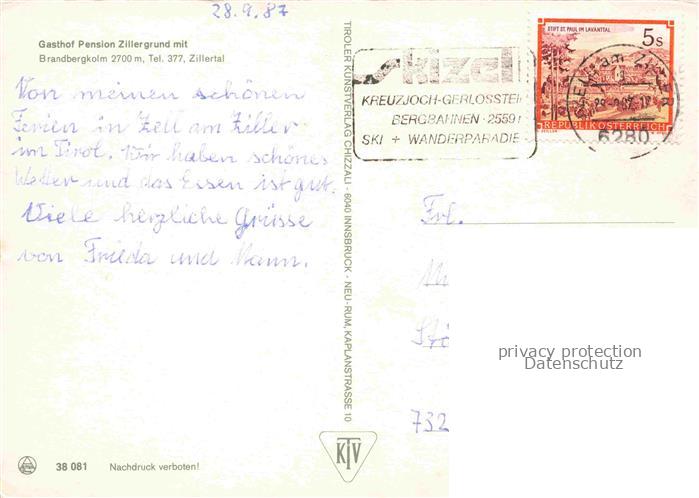 28.9.87
Gasthof Pension Zillergrund mit
Brandbergkolm 2700 m, Tel. 377, Zillertal
Von meinen schönen
Ferien in Zell am Ziller
im Tirol. Wir haben schönes
Wetter und das Essen ist gut.
Viele herzliche Grüsse
von Frieda und Mann.
38 081 Nachdruck verboten!
TIROLER KUNSTVERLAG CHIZZALI · 6040 INNSBRUCK - NEU-RUM, KAPLANSTRASSE 10
KTV
KREUZJOCH-GERLOSSTEI
BERGBAHNEN · 2559
SKI + WANDERPARADIE
STIFT ST. PAUL IM LAVANTTAL
5s
REPUBLIK ÖSTERREICH
6280
Frl.
732
privacy protection
Datenschutz